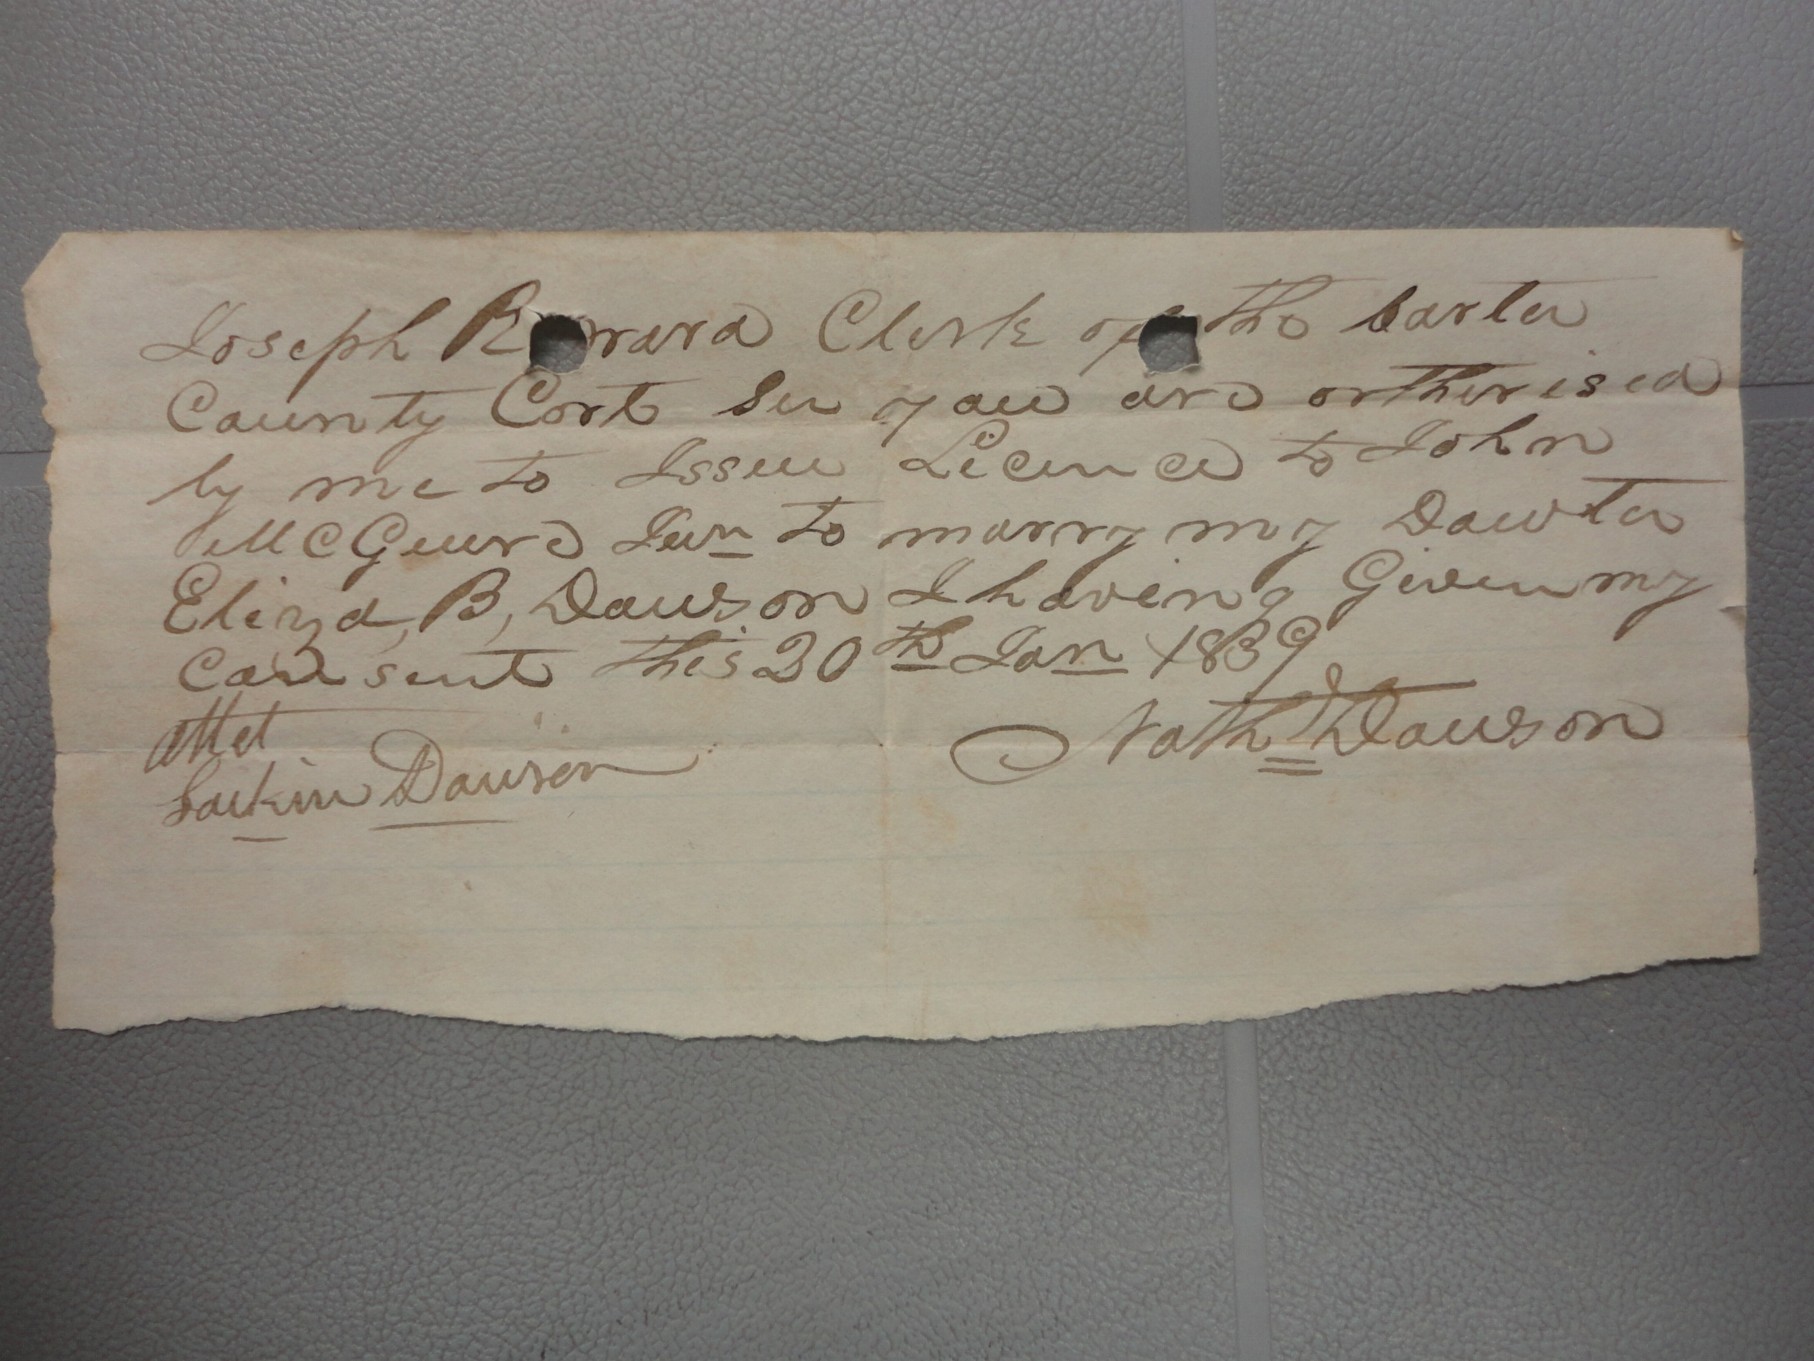 Joseph Clerk of the Carter
County Cort Ser you are ortherised
by me to Issue Licence to John
McGeure Jun to marry my Dawter
Eliza, B, Dawson I having Given my
consent this 20th Jan 1839
attet Nathl Dawson
Larkin Dawson